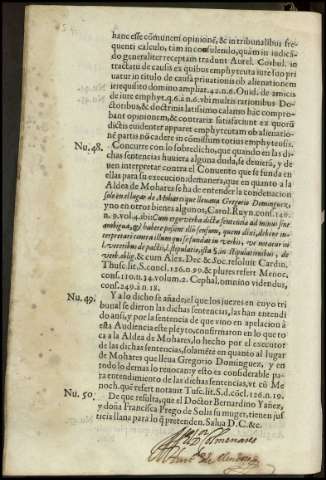 hanc esse cõmunem opinionẽ, & in tribunalibus fre-
quenti calculo, tàm in consulendo, quàm in iudicã-
do generaliter receptam tradunt Aurel. Corbul. in
tractatu de causis ex quibus emphyteuta iure suo pri
uatur in titulo de causa priuationis ob alienationem
irrequisito domino ampliat. 42. n. 6. Ouid. de amicis
de iure emphyt. q. 62. n. 6. vbi multis rationibus Do-
ctoribus, & doctrinis latissimo calamo hãc compro-
bant opinionem, & contrarijs satisfaciunt ex quorũ
dictis euidenter apparet emphyteutam ob alienatio-
nẽ partis nõ cadere in cõmissum totius emphyteosis.
Nu. 48. Concurre con lo sobredicho, que quando en las di-
chas sentencias huuiera alguna duda, se deuiera, y de-
uen interpretar contra el Conuento que se funda en
ellas para su execucion: demanera, que en quanto a la
Aldea de Mohares se ha de entender la condenacion
solo en el lugar de Mohares que lleuaua Gregorio Dominguez,
y no en otros bienes algunos, Carol. Ruyn. conf. 140.
n. 9. vol. 4. ibi: Cum ergo verba dictæ sententiæ ad minus sint
ambigua, & habere possint istũ sensum, quem dixi, debent in-
terpretari contra illum qui se fundat in verbis, vt notatur in
l. veteribus de pactis, l. stipulatio, ista § in stipulationibus, de
verb. oblig. & cum Alex. Dec. & Soc. resoluit Cardin.
Thusc. lit. S. concl. 126. n. 90. & plures refert Menoc.
conf. 110. n. 34. volum. 2. Cephal. omnino videndus,
conf. 249. à n. 18.
Nu. 49. Y a lo dicho se añade, el que los juezes en cuyo tri
bunal se dieron las dichas sentencias, las han entendi
do ansi, y por la sentencia de que vino en apelacion à
esta Audiencia este pleyto, confirmaron en lo que to-
ca a la Aldea de Mohares, lo hecho por el executor
de las dichas sentencias, solamẽte en quanto al lugar
de Mohares que lleua Gregorio Dominguez, y en
todo lo demas lo reuocan: y esto es considerable pa-
ra entendimiento de las dichas sentencias, vt cũ Me
noch. quẽ refert notauit Tusc. lit. S. d. cõcl. 126. n. 19.
Nu. 50. De que resulta, que el Doctor Bernardino Yañez,
y doña Francisca Prego de Solis su muger, tienen jus
ticia llana para lo q̃ pretenden. Salua D. C. &c.
Colmenares